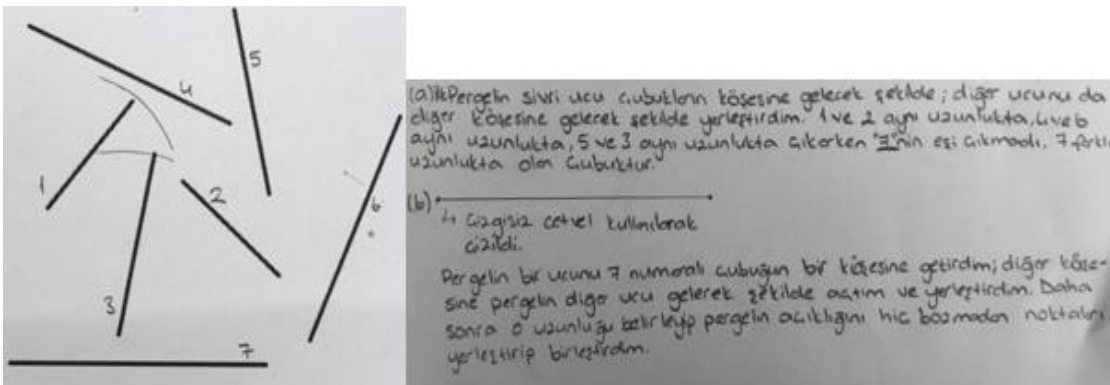 4
5
1
2
6
3
7
(a) İlk Pergelin sivri ucu çubukların köşesine gelecek şekilde; diğer ucunu da
diğer köşesine gelecek şekilde yerleştirdim. 1 ve 2 aynı uzunlukta, 4 ve 6
aynı uzunlukta, 5 ve 3 aynı uzunlukta çıkarken "7"nin eşi çıkmadı. 7 farklı
uzunlukta olan çubuktur.
(b)
↳ Çizgisiz cetvel kullanılarak
çizildi.
Pergelin bir ucunu 7 numaralı çubuğun bir köşesine getirdim; diğer köşe-
sine pergelin diğer ucu gelerek şekilde açtım ve yerleştirdim. Daha
sonra o uzunluğu belirleyip pergelin açıklığını hiç bozmadan noktaları
yerleştirip birleştirdim.